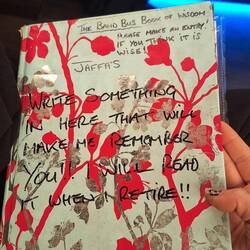 The Band Bus Book of Wisdom
Please make an entry!
if you think it is
wise!
Jaffas
Write something
in here that will
make me remember
you!! I will read
it when I retire!!